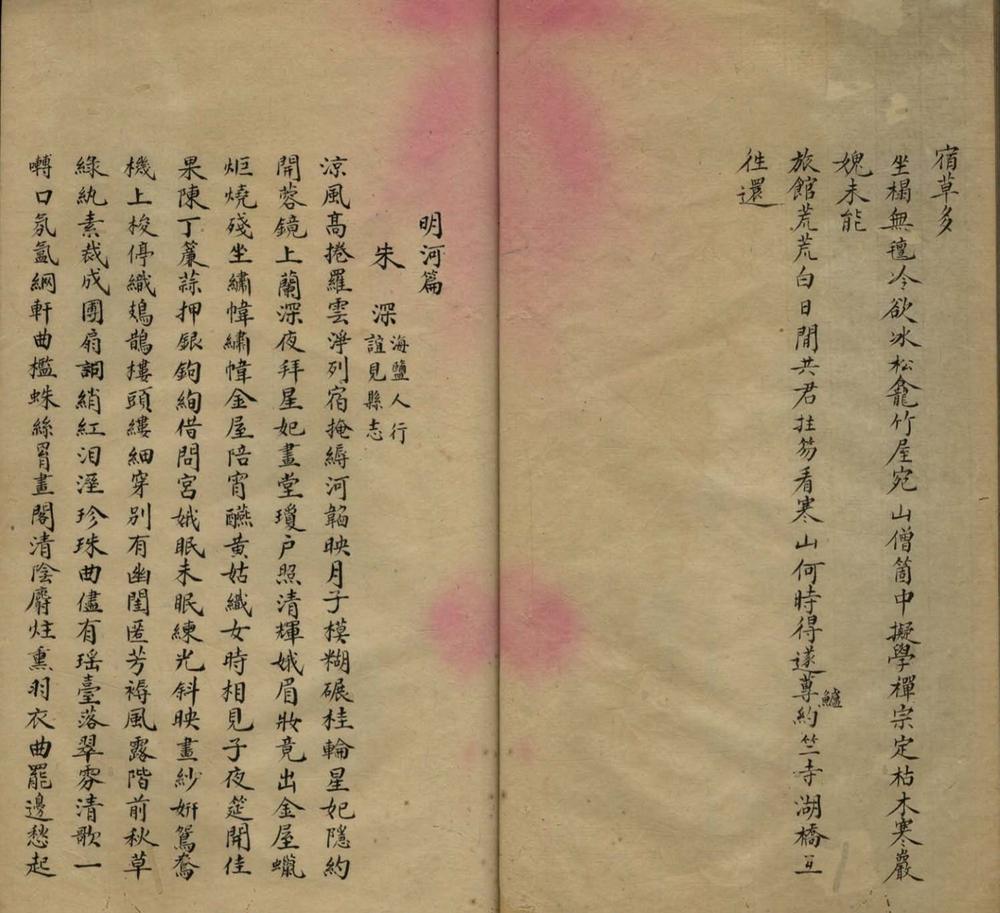 宿草多
坐榻無氊冷欲冰松龕竹屋宛山僧箇中擬學禪宗定枯木寒巖
媿未能
旅館荒荒白日閒共君拄笏看寒山何時得遂蓴鱸約竺寺湖橋互
徃還
明河篇
朱 深 海鹽人行
誼見縣志
涼風高捲羅雲淨列宿掩縟河韜映月子模糊碾桂輪星妃隱約
開蓉鏡上蘭深夜拜星妃畫堂瓊户照清輝娥眉妝竟出金屋蠟
炬燒殘坐繡幃繡幃金屋陪宵醼黄姑織女時相見子夜筵開佳
果陳丁簾蒜押銀鉤絢借問宮娥眠未眠練光斜映畫紗妍鴛鴦
機上梭停織鳷鵲樓頭縷細穿別有幽閨匿芳褥風露階前秋草
綠紈素裁成團扇詞綃紅泪溼珍珠曲儘有瑶臺落翠雰清歌一
囀口氛氳網軒曲檻蛛絲罥畫閣清陰麝炷熏羽衣曲罷邊愁起